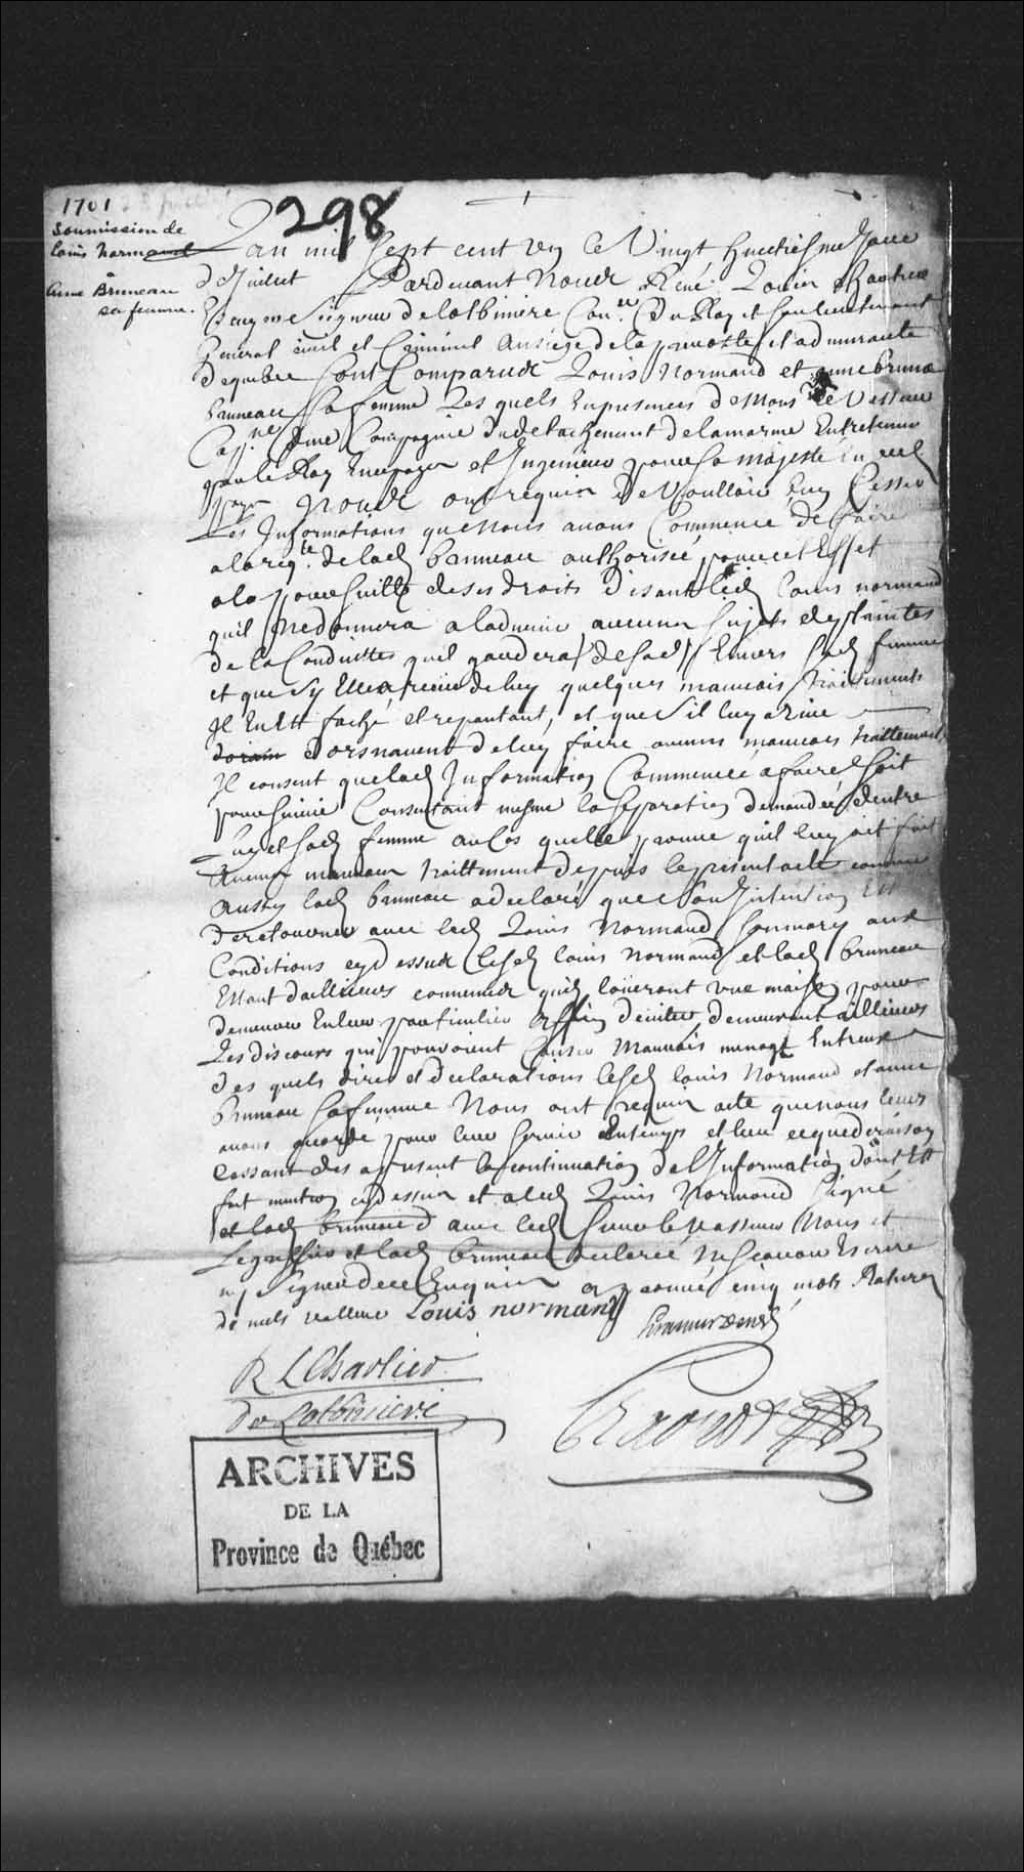 1701
298
Soumission de
Louis Normand
&
Anne Bruneau
sa femme.
Lan mil sept cent un le Vingt huictiesme Jour
de Juillet Pardevant Nous René Louis Chartier
Escuyer Seigneur de Lotbiniere Con.er du Roy et Lieutenant
General civil et Criminel au siege de la prevosté et admirauté
de quebec sont Comparus Louis Normand et anne bruneau
bruneau sa femme Lesquels En presence de Mons.r Le Vasseur
Cap.ne dune Compagnie du detachement de la marine Entretenue
par le Roy En ce pays et Ingenieur pour sa majesté En ced
pays Nous ont requis de Voulloir Cesser
Les Informations que Nous avons Commencé de faire
a la req.te de lad bruneau authorisée pour cet Effet
a la poursuitte de ses droits disant led Louis normand
quil ne donnera a ladvenir aucuns sujets de plaintes
de la Conduitte quil gardera Envers sad femme
et que sy Elle a receu de luy quelques mauvais traittements
Il En Est faché et repentant, et que sil luy arrive
doresnavant de luy faire aucuns mauvais traittements
Il consent que lad Information Commencée a faire soit
poursuivie Consentant mesme la separation demandée d'entre
luy et sad femme au Cas quelle prouve quil luy ait fait
Aucuns mauvais traittement depuis le present acte comme
Aussy lad bruneau a declaré que son Intention Est
de retourner avec led Louis Normand son mary aux
Conditions cy dessus lesd louis Normand et lad bruneau
Estant dailleurs convenus quils loüeront une maison pour
demeurer En leur particulier affin d'eviter demeurant ailleurs
Les discours qui pouroient Causer Mauvais menage Entreux
des quels dires et declarations lesd louis Normand et anne
bruneau sa femme Nous ont requis acte que nous leurs
avons accordé pour leur servir En temps et lieu ce que de raison
Cessant des a present la continuation de l'Information dont Est
fait mention cy dessus et a led Louis Normand signé
et lad bruneau avec led sieur levasseur Nous et
Le greffier et lad bruneau declaré ne scavoir Escrire
ny signer de ce Enquis approuvé cinq mots Rature
de nuls valleur Louis normand
R L Chartier
de Lotbiniere
ARCHIVES
DE LA
Province de Québec